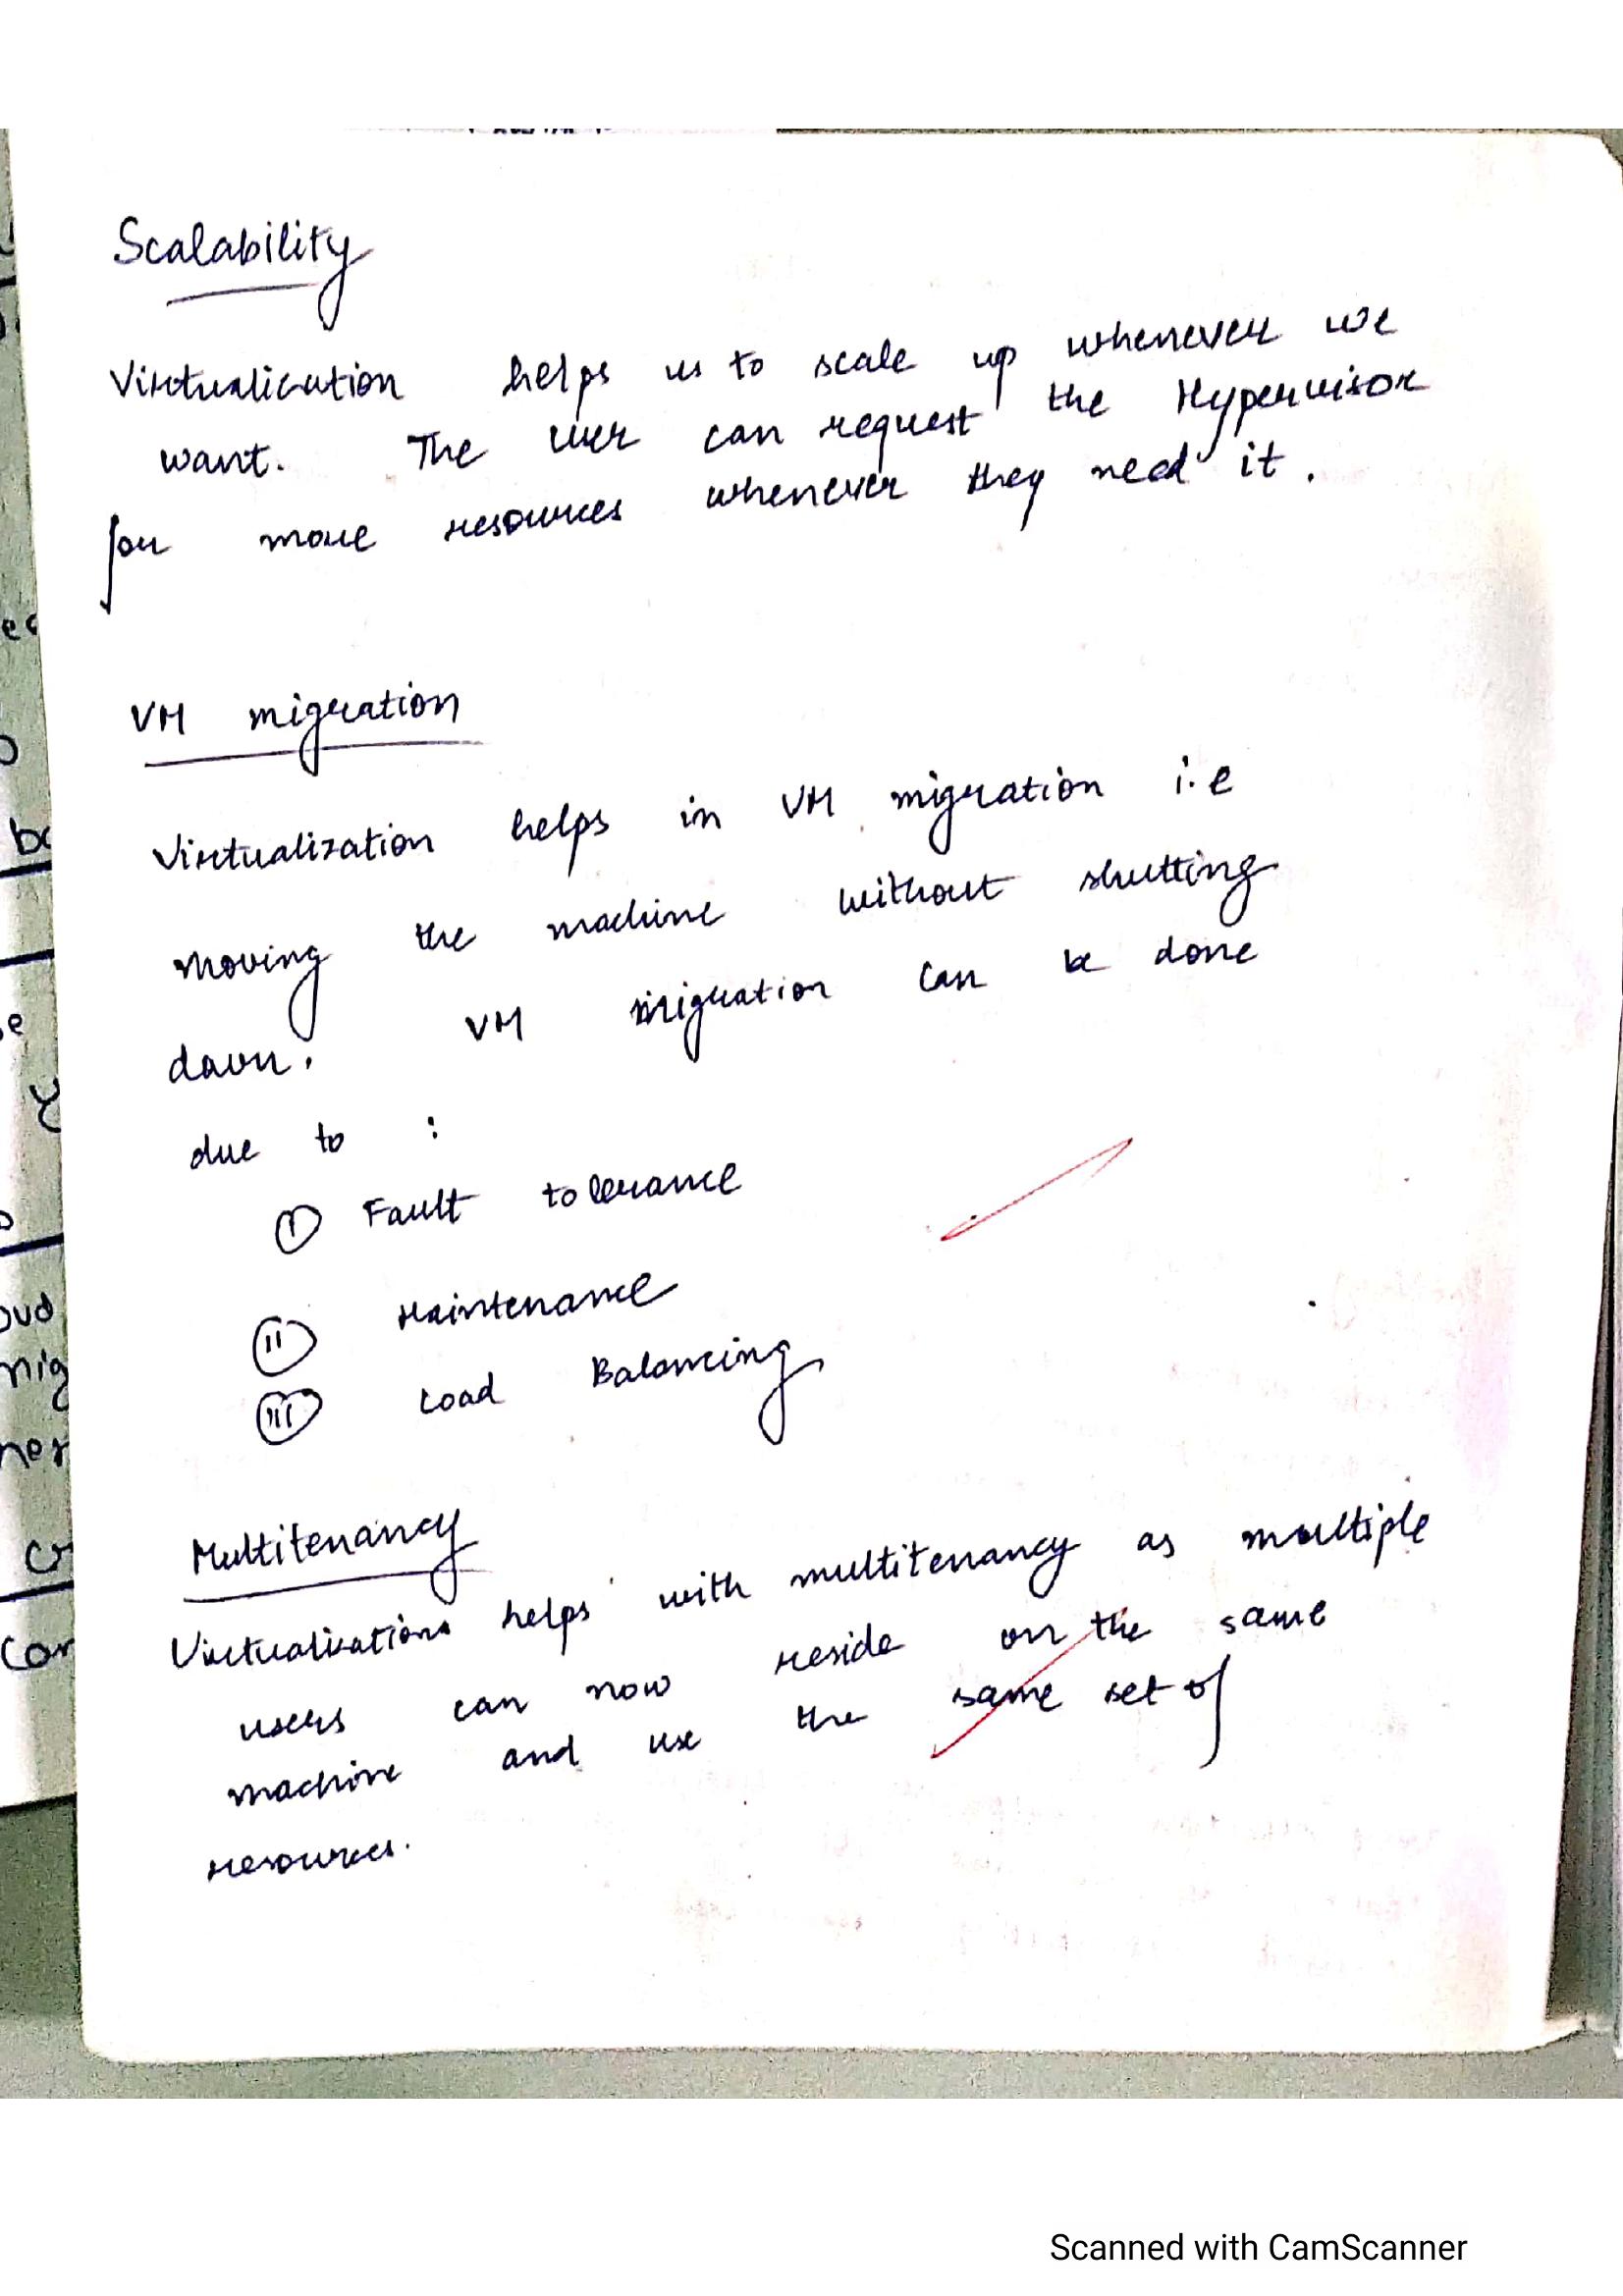 Scalability
Virtualization helps us to scale up whenever we
want. The user can request the Hypervisor
for more resources whenever they need it.
VM migration
Virtualization helps in VM migration i.e
moving the machine without shutting
down. VM migration can be done
due to :
(I) Fault tolerance
(II) Maintenance
(III) Load Balancing
Multitenancy
Virtualizations helps with multitenancy as multiple
users can now reside on the same
machine and use the same set of
resources.
Scanned with CamScanner